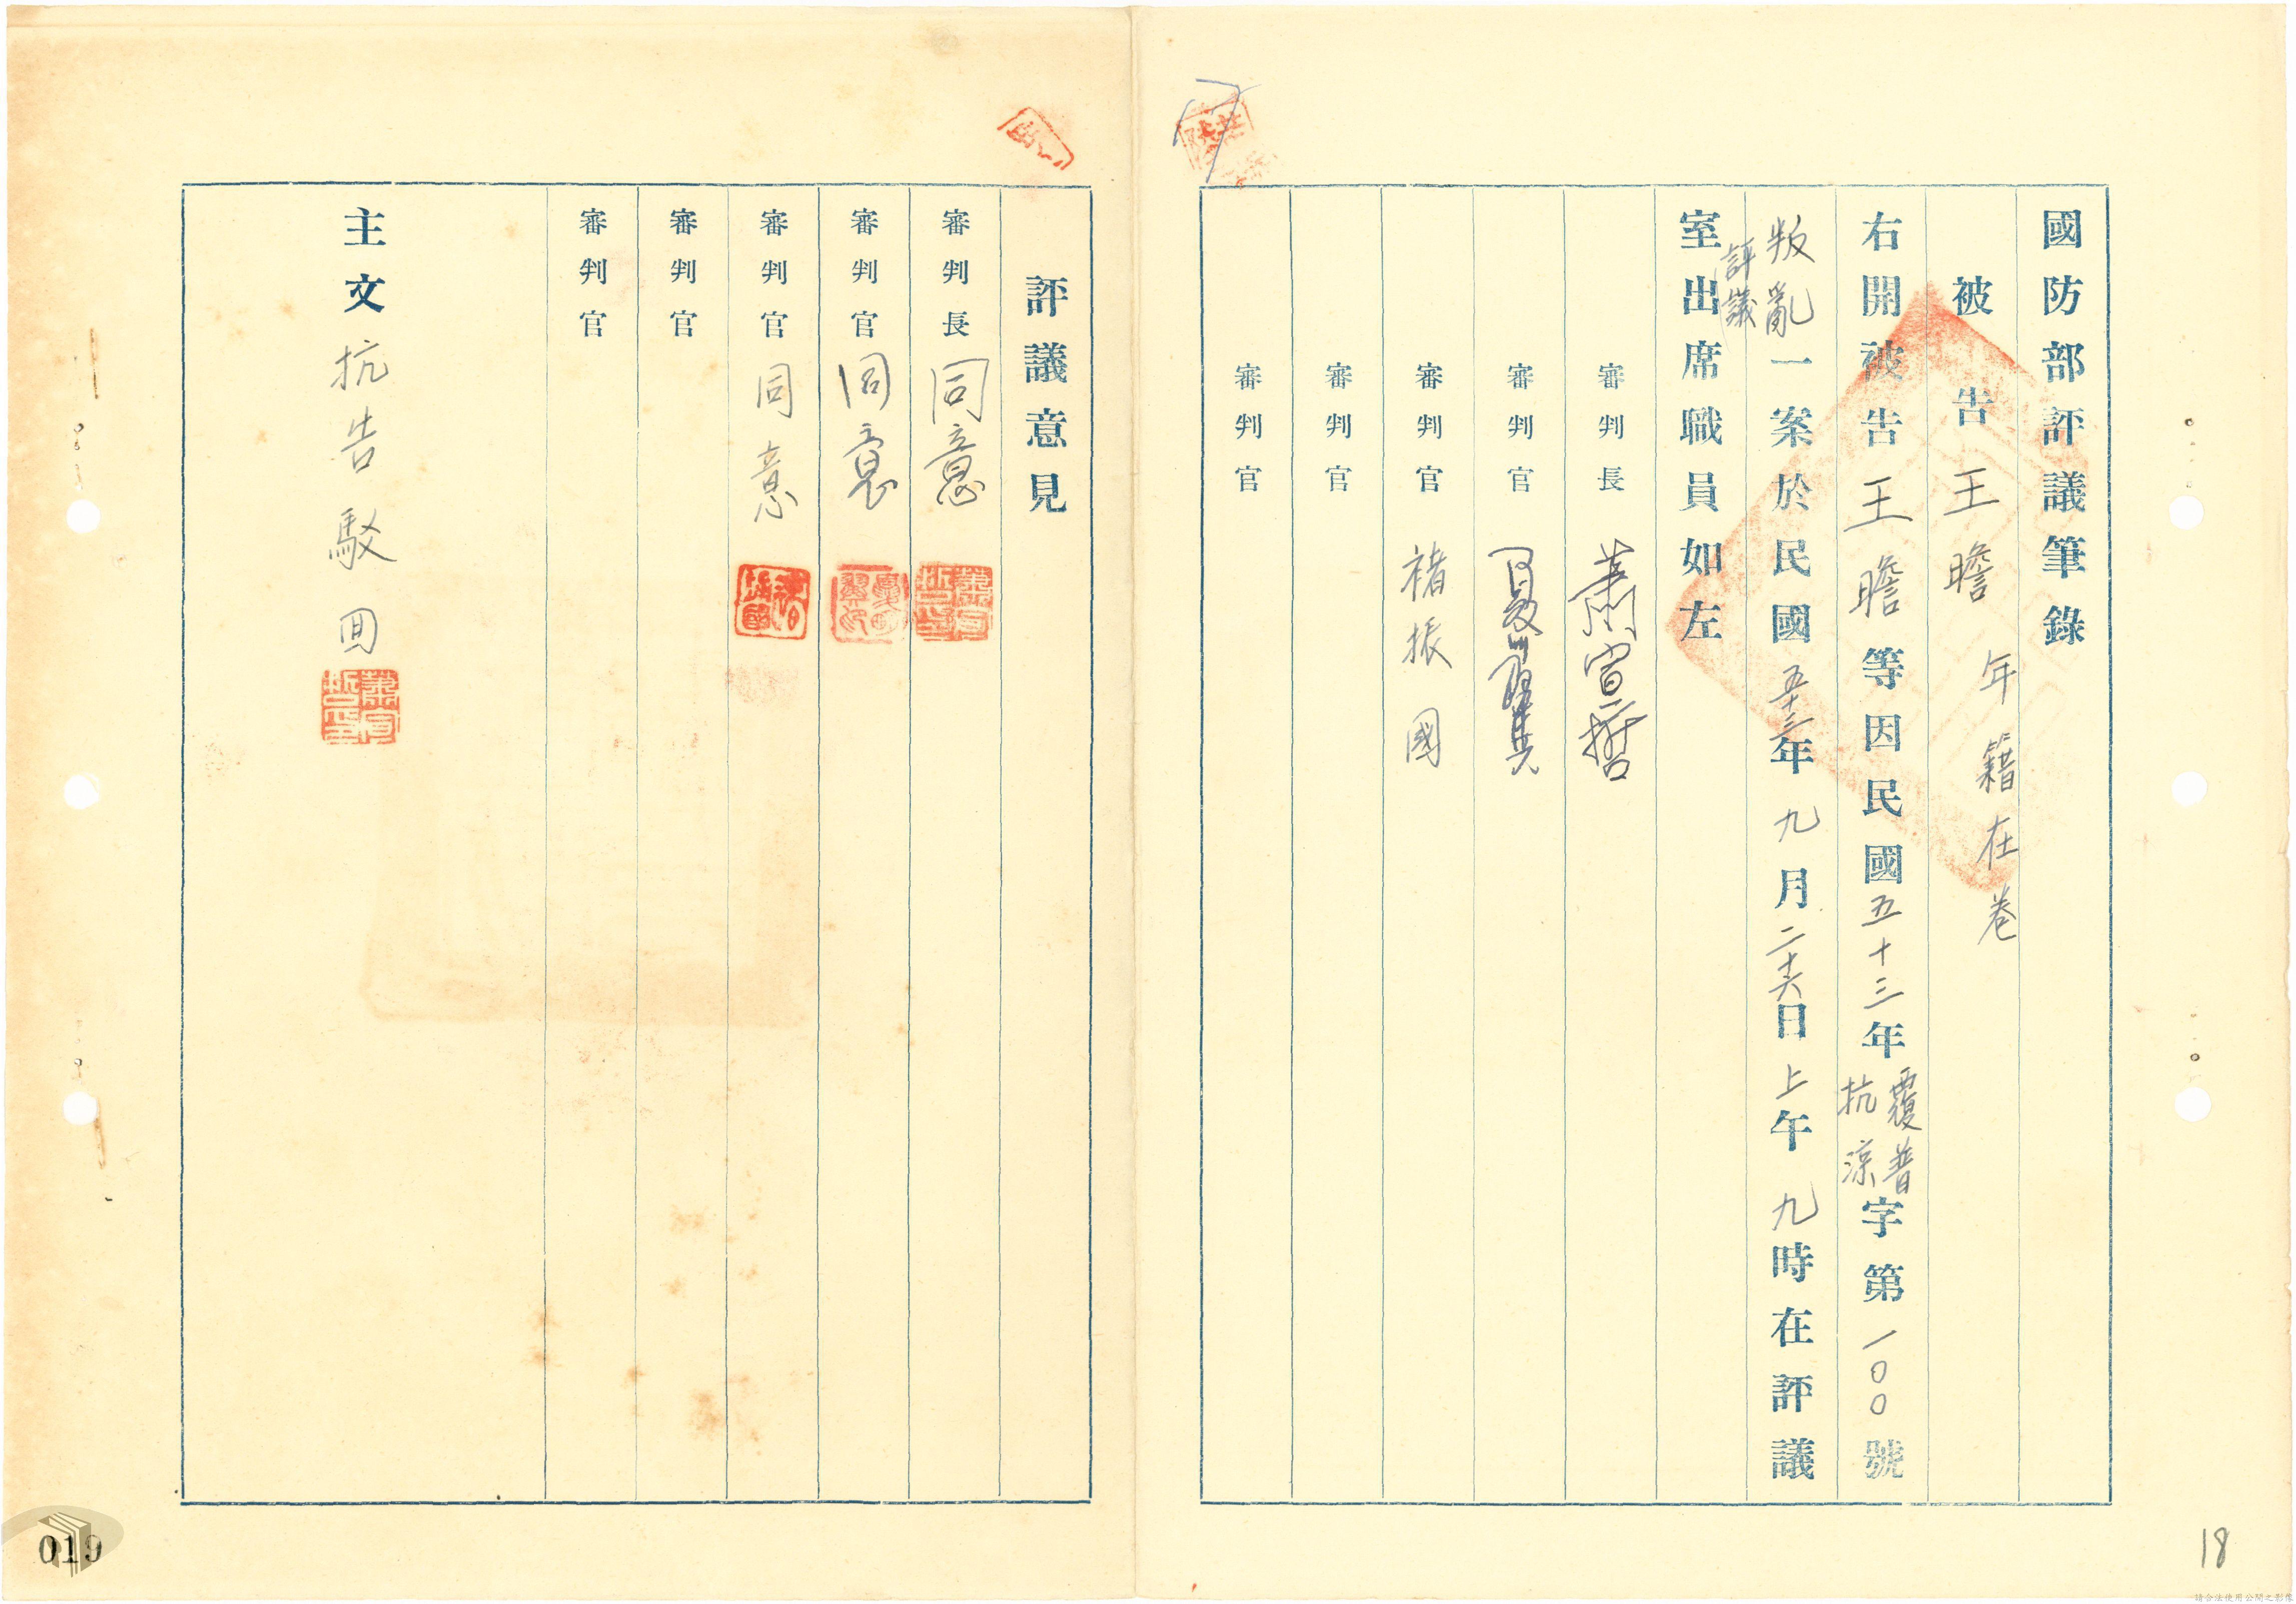 國防部評議筆錄
被告王瞻 年籍在卷
右開被告王瞻等因民國五十三年覆普抗涼字第一〇〇號
叛亂評議一案於民國五十三年九月二十六日上午九時在評議
室出席職員如左
審判長
審判官
審判官 褚振國
審判官
審判官
評議意見
審判長 同意
審判官 同意
審判官 同意
審判官
審判官
主文 抗告駁回
18
019
請合法使用公開之影像